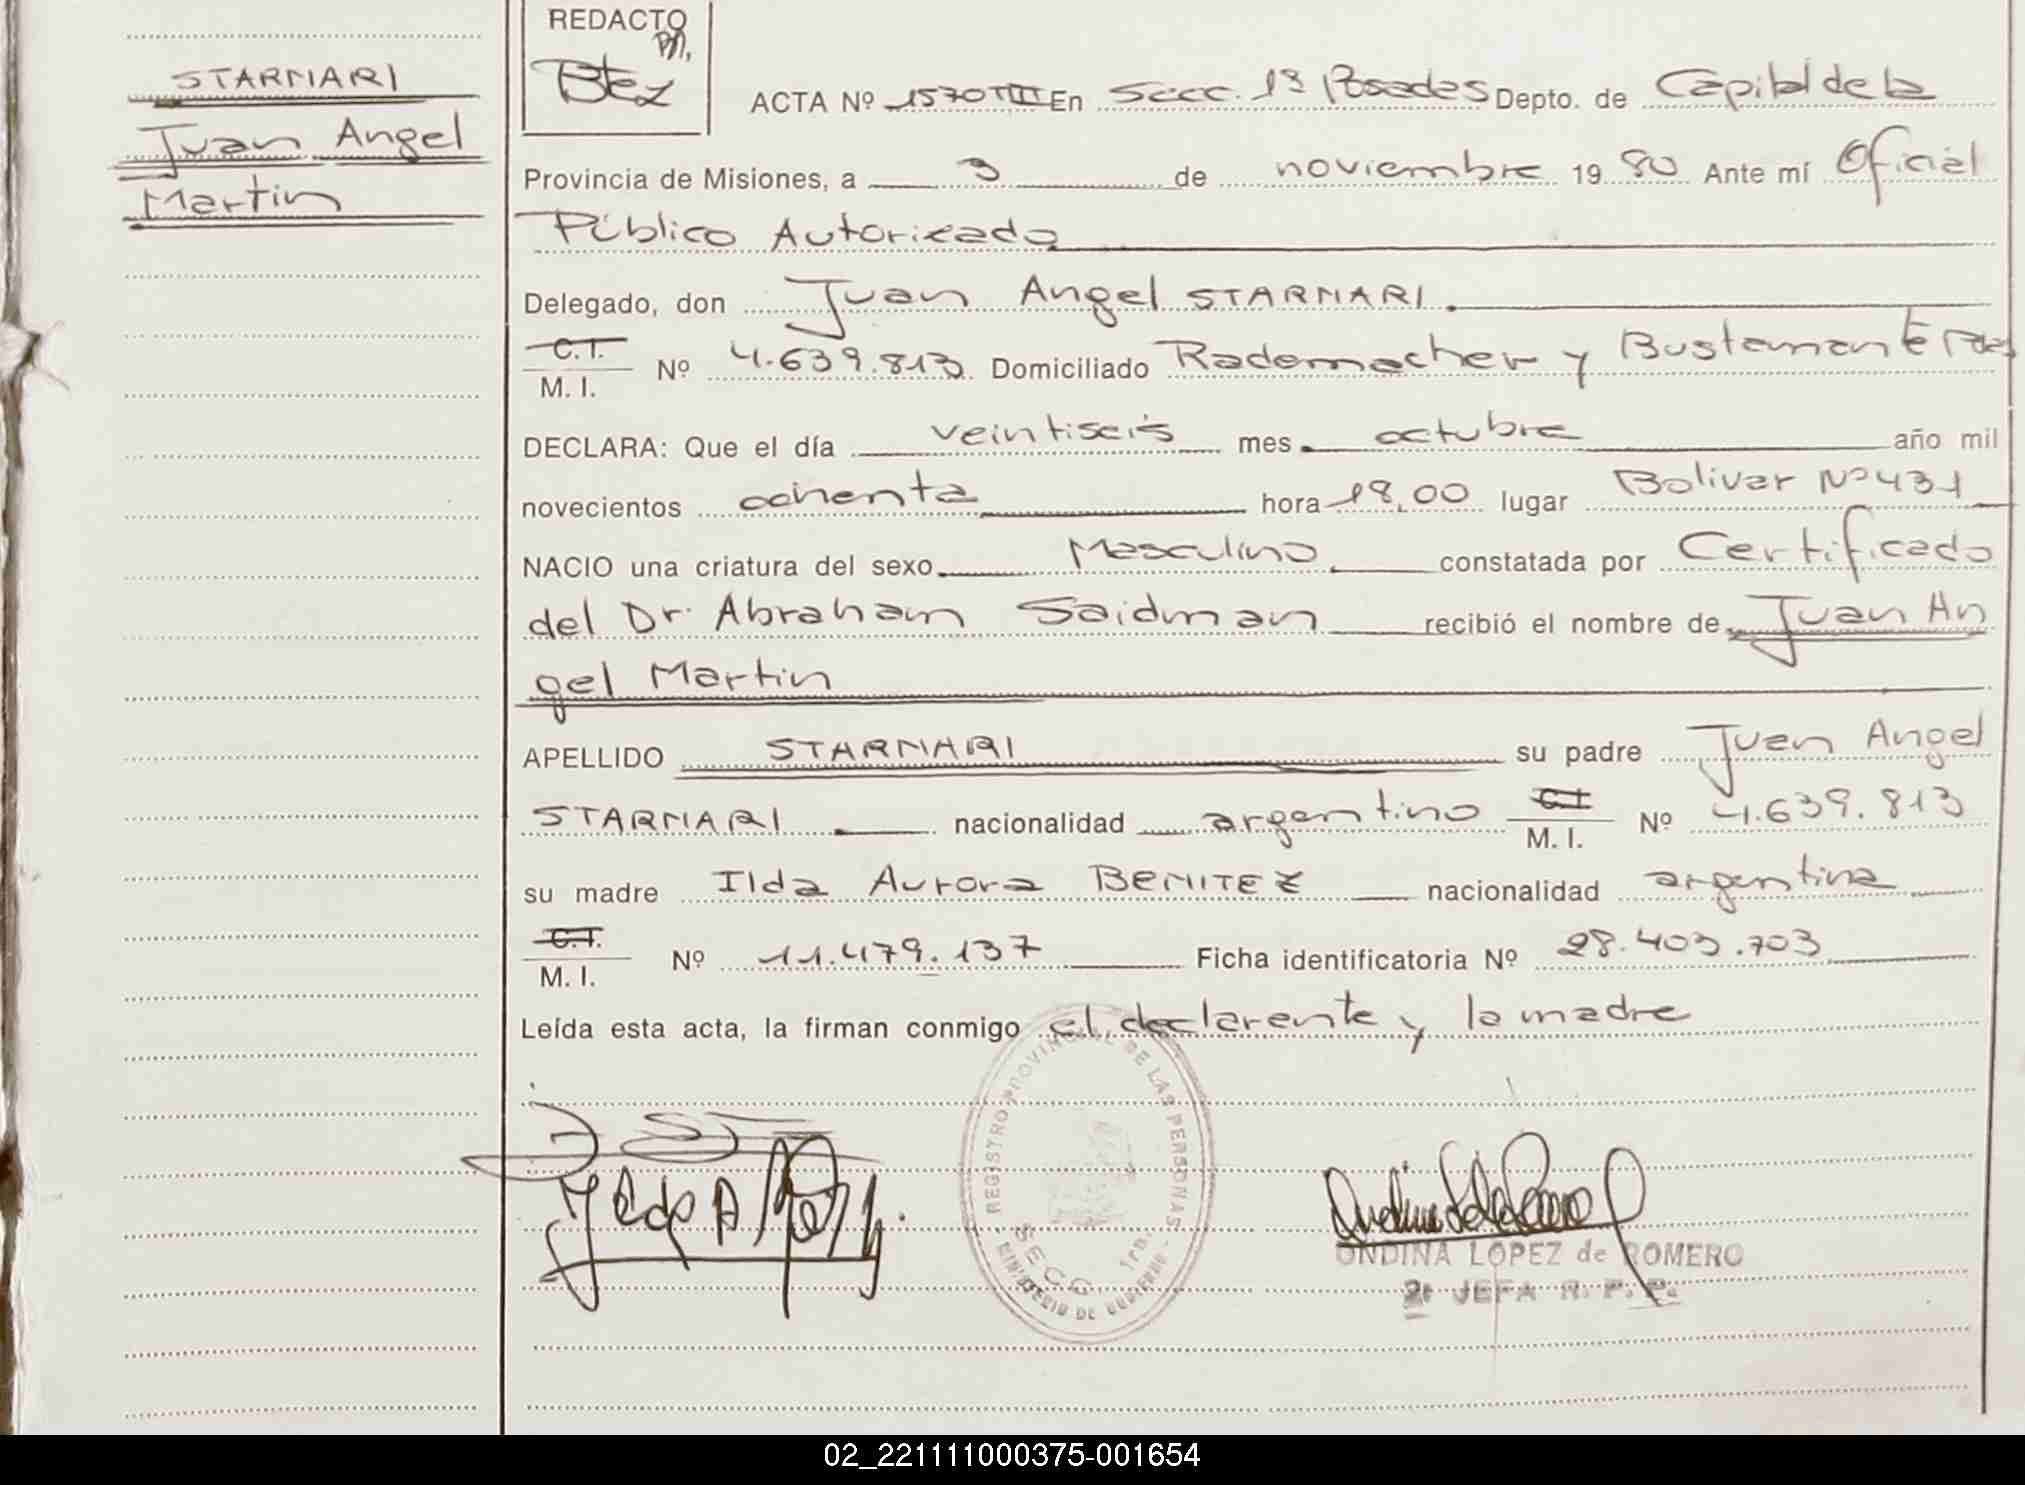 STARNARI
Juan Angel
Martin
REDACTO
Btez
ACTA Nº 1570 TIII En Secc. 1ª Posadas Depto. de Capital de la
Provincia de Misiones, a 3 de noviembre 19 80 Ante mí Oficial
Público Autorizado
Delegado, don Juan Angel STARNARI.
C.I.
M. I. Nº 4.639.813 Domiciliado Rademacher y Bustamante Pdas
DECLARA: Que el día veintiseis mes octubre año mil
novecientos ochenta hora 18,00 lugar Bolivar Nº 431
NACIO una criatura del sexo Masculino constatada por Certificado
del Dr. Abraham Saidman recibió el nombre de Juan An
gel Martin
APELLIDO STARNARI su padre Juan Angel
STARNARI nacionalidad argentino C.I. M. I. Nº 4.639.813
su madre Ilda Aurora BENITEZ nacionalidad argentina
C.I.
M. I. Nº 11.479.137 Ficha identificatoria Nº 28.403.703
Leída esta acta, la firman conmigo el declarante y la madre
REGISTRO PROVINCIAL DE LAS PERSONAS
SECC. 1ra.
MINISTERIO DE GOBIERNO
ONDINA LOPEZ de ROMERO
2ª JEFA R. P. P.
02_221111000375-001654